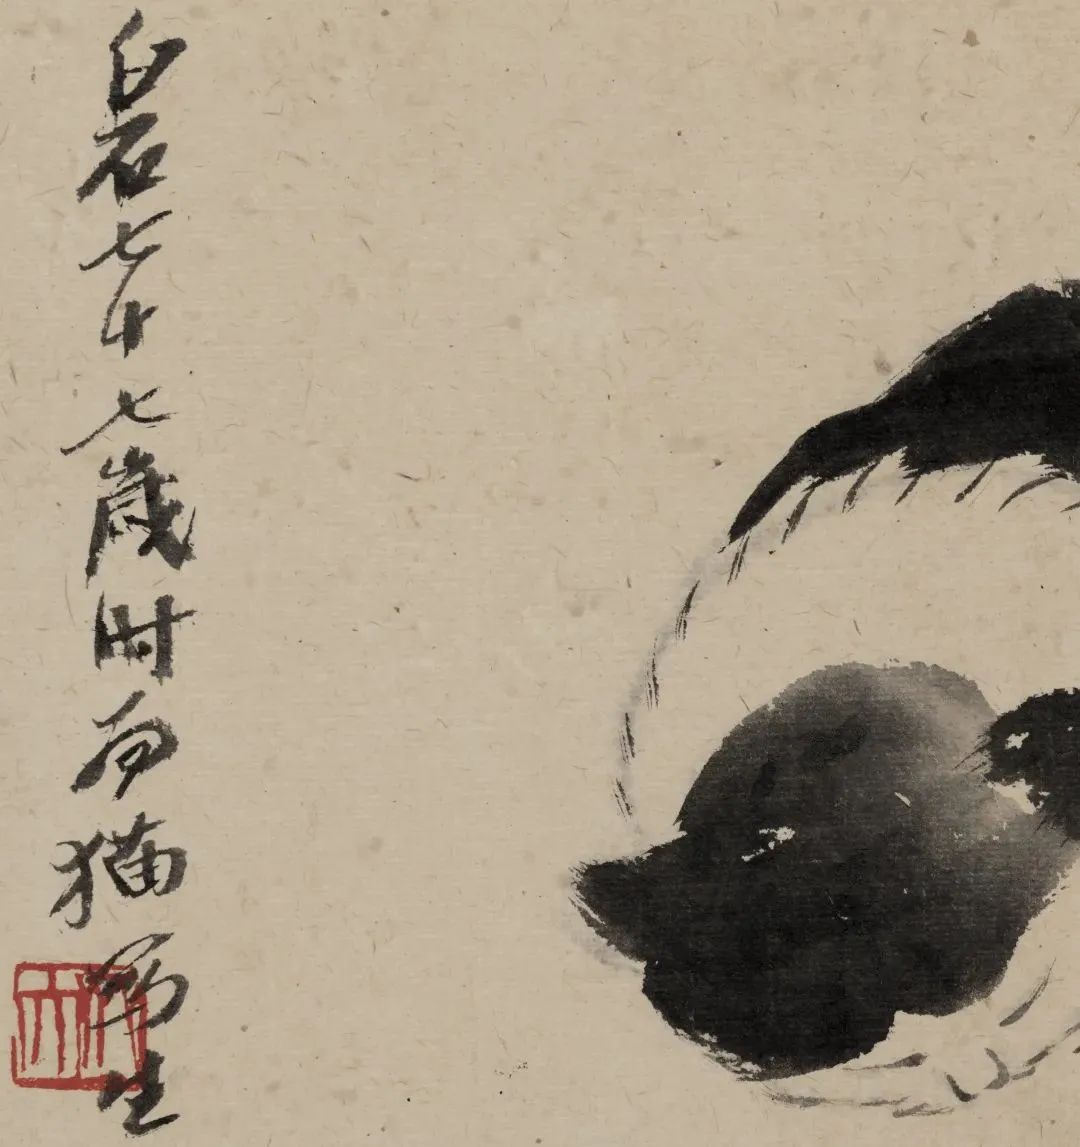 白石七十七歲时猫寫生